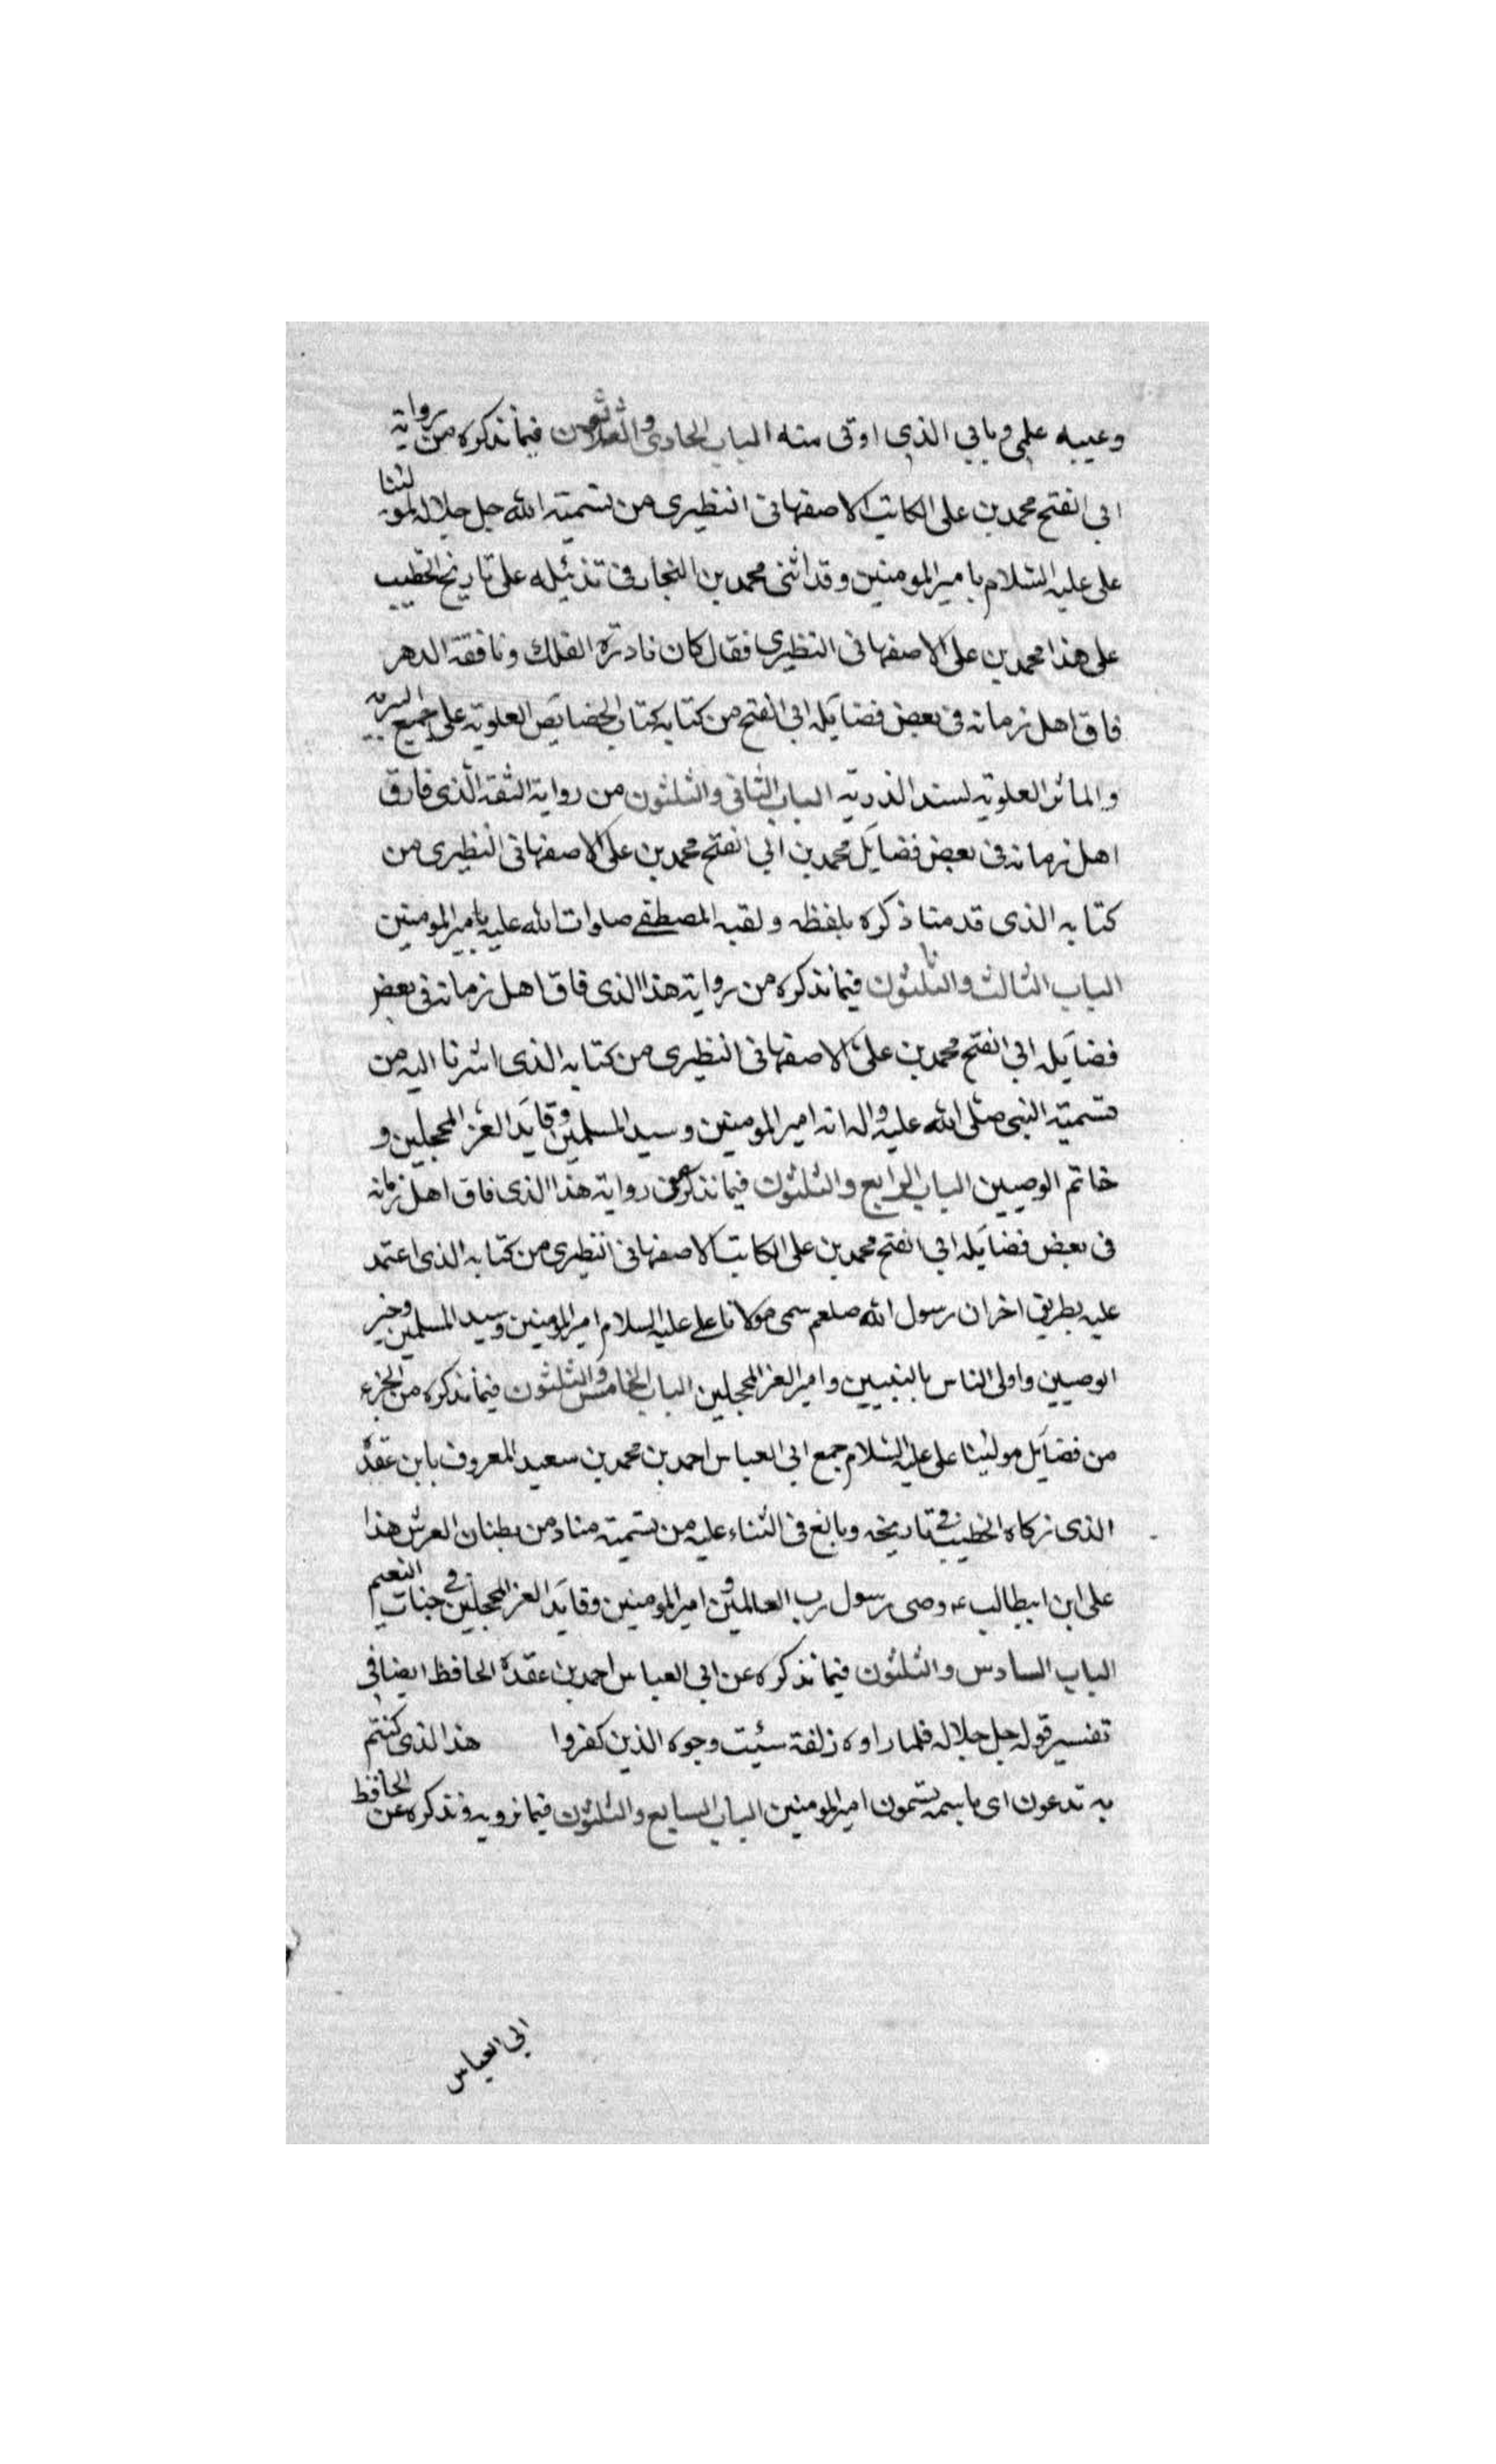 وعيبه علمى وبابي الذى اوتى منه الباب الحادى والثلاثون فيما نذكره من رواية
ابي الفتح محمد بن على الكاتب الاصفهانى النظيرى من تسمية الله جل جلاله لمولينا
على عليه السلام بامير المومنين وقد اثنى محمد بن النجار فى تذئيله على تاريخ الخطيب
على هذا محمد بن على الاصفهانى النظيرى فقال كان نادرة الفلك ونافقة الدهر
فاق اهل زمانه فى بعض فضايله ابى الفتح من كتابه كتاب الخصايص العلوية على جميع البرية
والماثر العلوية لسند الذرية الباب الثانى والثلثون من رواية الثقة الذى فارق
اهل زمانه فى بعض فضايل محمد بن ابي الفتح محمد بن على الاصفهانى النظيرى من
كتابه الذى قدمنا ذكره بلفظه ولقبه المصطفى صلوات الله عليه بامير المومنين
الباب الثالث والثلثون فيما نذكره من رواية هذا الذى فاق اهل زمانه فى بعض
فضايله ابي الفتح محمد بن على الاصفهانى النظيرى من كتابه الذى اشرنا اليه من
تسمية النبى صلى الله عليه واله انه امير المومنين وسيد المسلمين وقايد الغر المحجلين و
خاتم الوصيين الباب الرابع والثلثون فيما نذكره من رواية هذا الذى فاق اهل زمانه
فى بعض فضايله ابي الفتح محمد بن على الكاتب الاصفهانى النظيرى من كتابه الذى اعتمد
عليه بطريق اخر ان رسول الله صلعم سمى مولانا على عليه السلام امير المومنين وسيد المسلمين وخير
الوصيين واولى الناس بالنبيين وامير الغر المحجلين الباب الخامس والثلثون فيما نذكره من الجزء
من فضايل مولينا على عليه السلام جمع ابى العباس احمد بن محمد بن سعيد المعروف بابن عقدة
الذى زكاه الخطيب فى تاريخه وبالغ فى الثناء عليه من تسمية مناد من بطنان العرش هذا
على ابن ابيطالب ع وصى رسول رب العالمين وامير المومنين وقايد الغر المحجلين فى جنات النعيم
الباب السادس والثلثون فيما نذكره عن ابى العباس احمد بن عقدة الحافظ ايضا فى
تفسير قوله جل جلاله فلما راوه زلفة سيئت وجوه الذين كفروا هذا الذى كنتم
به تدعون اى باسمه تسمون امير المومنين الباب السابع والثلثون فيما نرويه ونذكره عن الحافظ
ابى العباس